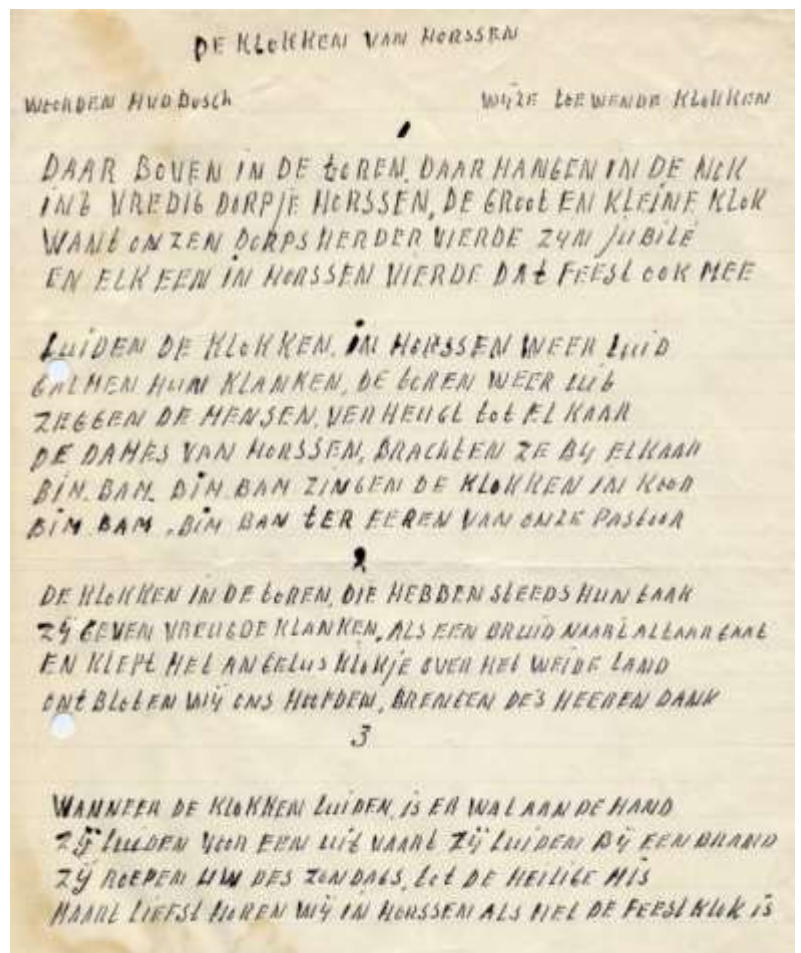 DE KLOKKEN VAN HORSSEN
WOORDEN HVD BUSCH
WIJZE LOEWENDE KLOKKEN
1
DAAR BOVEN IN DE tOREN, DAAR HANGEN IN DE NOK
INt VREDIG DORPJE HORSSEN, DE GROOt EN KLEINE KLOK
WANt ONZEN DORPSHERDER VIERDE ZYN JUBILÉ
EN ELK EEN IN HORSSEN VIERDE DAt FEESt OOK MEE
LUIDEN DE KLOKKEN, IN HORSSEN WEER LUID
GALMEN HUN KLANKEN, DE tOREN WEER UIt
ZEGGEN DE MENSEN, VERHEUGt tOt ELKAAR
DE DAMES VAN HORSSEN, BRACHtEN ZE BIJ ELKAAR
BIM. BAM. BIM BAM ZINGEN DE KLOKKEN IN KOOR
BIM. BAM. BIM BAN tER EEREN VAN ONZE PAStOOR
2
DE KLOKKEN IN DE tOREN, DIE HEBBEN StEEDS HUN tAAK
ZIJ GEVEN VREUGDE KLANKEN, ALS EEN BRUID NAARt ALtAAR GAAt
EN KLEPt HEt ANGELUS KLOKJE OVER HEt WEIDE LAND
ONtBLOtEN WIJ ONS HOOFDEN, BRENGEN DES HEEREN DANK
3
WANNEER DE KLOKKEN LUIDEN, IS ER WAt AAN DE HAND
ZIJ LUIDEN VOOR EEN UIt VAARt ZIJ LUIDEN BIJ EEN BRAND
ZIJ ROEPEN UW DES ZONDAGS, tOt DE HEILIGE MIS
MAARt LIEFSt HOREN WIJ IN HORSSEN ALS HEt DE FEESt KLOK IS